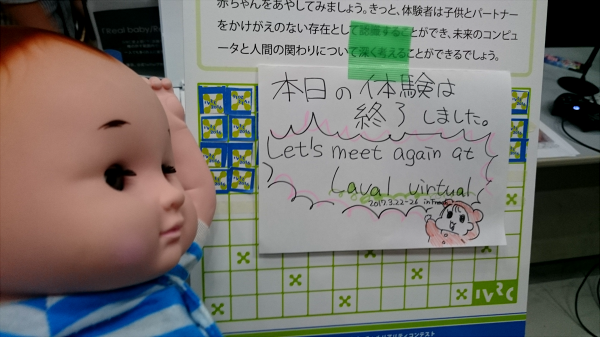 赤ちゃんをあやしてみましょう。きっと、体験者は子供とパートナー
をかけがえのない存在として認識することができ、未来のコンピュ
ータと人間の関わりについて深く考えることができるでしょう。
本日の体験は
終了しました。
Let's meet again at
Laval virtual
2017.3.22-26 in France
IVRC